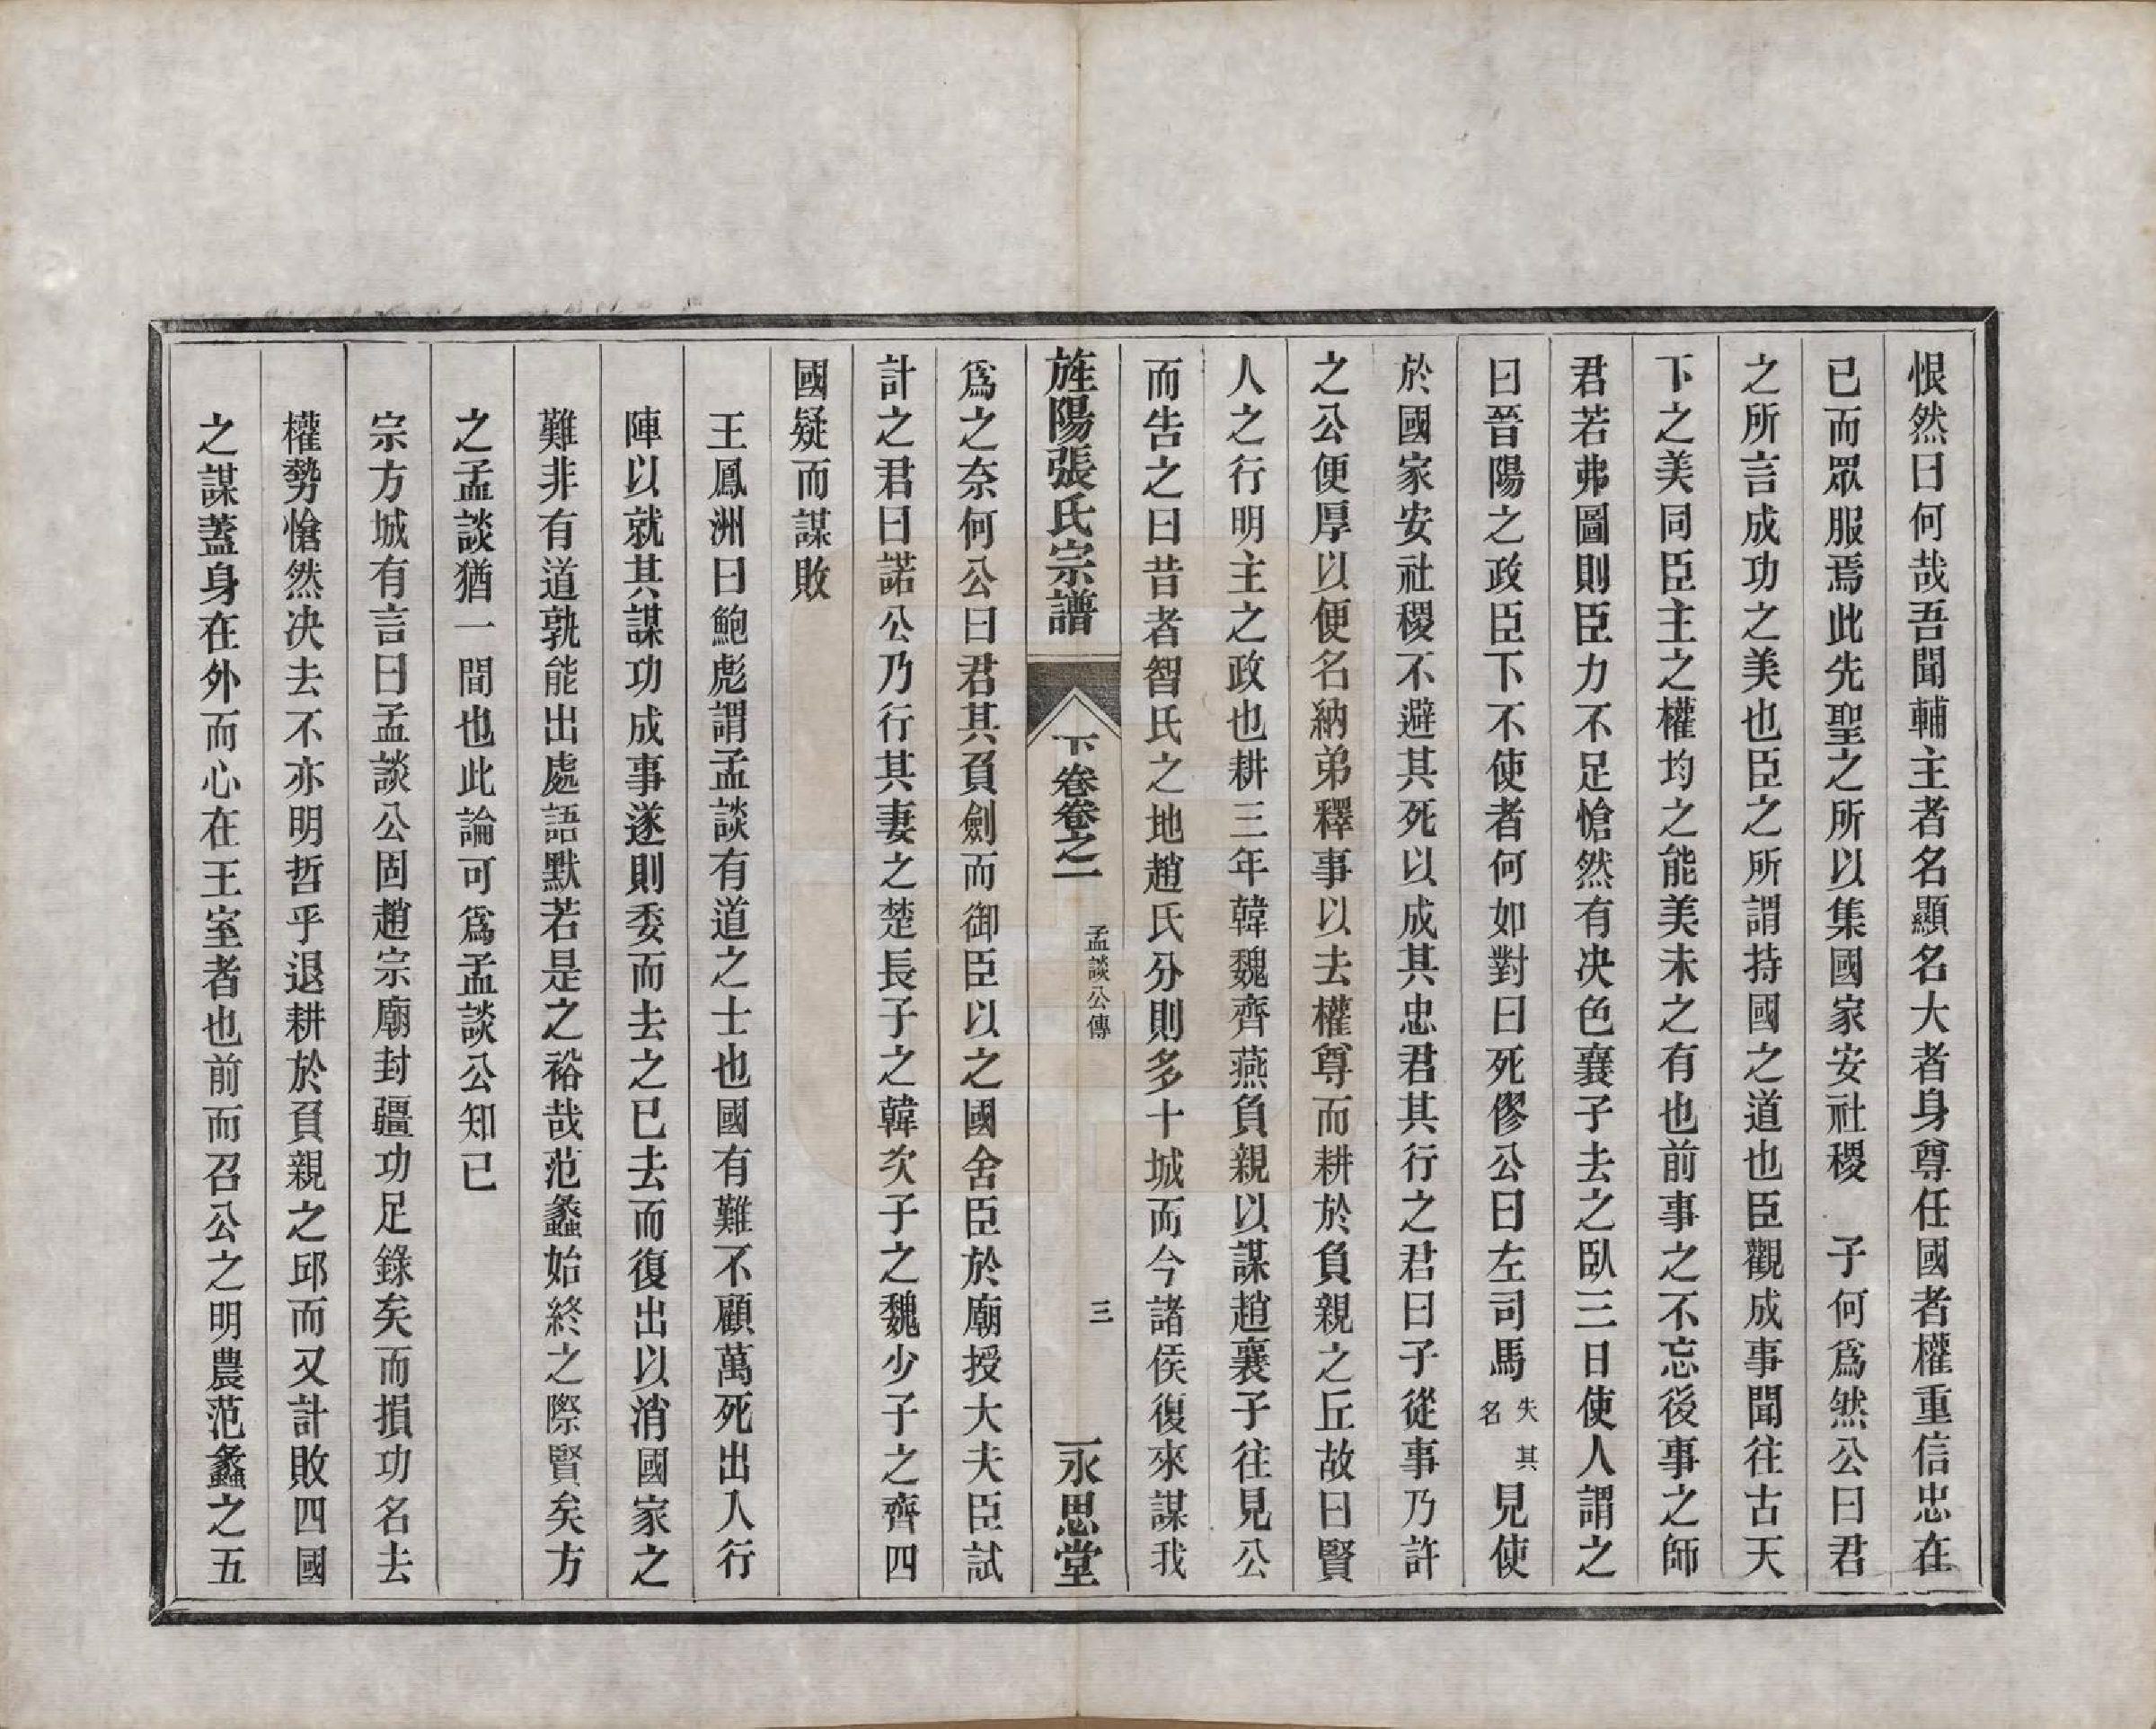 恨然曰何哉吾聞輔主者名顯名大者身尊任國者權重信忠在
已而眾服焉此先聖之所以集國家安社稷　子何爲然公曰君
之所言成功之美也臣之所謂持國之道也臣觀成事聞往古天
下之美同臣主之權均之能美未之有也前事之不忘後事之師
君若弗圖則臣力不足愴然有決色襄子去之臥三日使人謂之
曰晉陽之政臣下不使者何如對曰死僇公曰左司馬失其名見使
於國家安社稷不避其死以成其忠君其行之君曰子從事乃許
之公便厚以便名納弟釋事以去權尊而耕於負親之丘故曰賢
人之行明主之政也耕三年韓魏齊燕負親以謀趙襄子往見公
而告之曰昔者智氏之地趙氏分則多十城而今諸侯復來謀我
旌陽張氏宗譜　下卷卷之一　孟談公傳　三　永思堂
爲之奈何公曰君其負劍而御臣以之國舍臣於廟授大夫臣試
計之君曰諾公乃行其妻之楚長子之韓次子之魏少子之齊四
國疑而謀敗
王鳳洲曰鮑彪謂孟談有道之士也國有難不顧萬死出入行
陣以就其謀功成事遂則委而去之已去而復出以消國家之
難非有道孰能出處語默若是之裕哉范蠡始終之際賢矣方
之孟談猶一間也此論可爲孟談公知已
宗方城有言曰孟談公固趙宗廟封疆功足錄矣而損功名去
權勢愴然決去不亦明哲乎退耕於負親之邱而又計敗四國
之謀蓋身在外而心在王室者也前而召公之明農范蠡之五